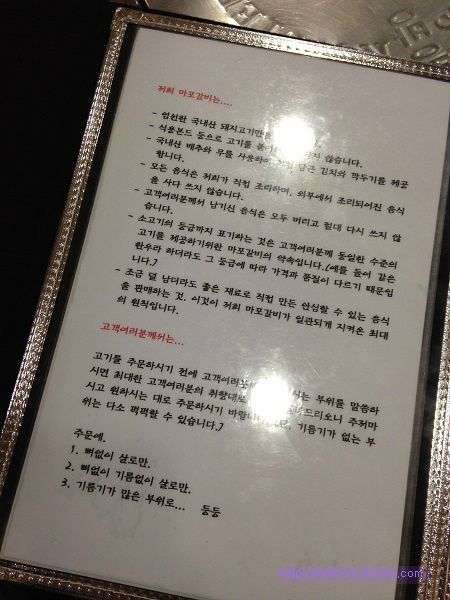 저희 마포갈비는....
- 엄선한 국내산 돼지고기만
- 식용본드 등으로 고기를 않습니다.
- 국내산 배추와 무를 사용하여 담근 김치와 깍두기를 제공
합니다.
- 모든 음식은 저희가 직접 조리하며, 외부에서 조리되어진 음식
을 사다 쓰지 않습니다.
- 고객여러분께서 남기신 음식은 모두 버리고 절대 다시 쓰지 않
습니다.
- 소고기의 등급까지 표기하는 것은 고객여러분께 동일한 수준의
고기를 제공하기위한 마포갈비의 약속입니다.(예를 들어 같은
한우라 하더라도 그 등급에 따라 가격과 품질이 다르기 때문입
니다.)
- 조금 덜 남더라도 좋은 재료로 직접 만든 안심할 수 있는 음식
을 판매하는 것. 이것이 저희 마포갈비가 일관되게 지켜온 최대
의 원칙입니다.
고객여러분께서는...
고기를 주문하시기 전에 고객여러분 시는 부위를 말씀하
시면 최대한 고객여러분의 취향대로 드리오니 주저마
시고 원하시는 대로 주문하시기 바랍니다. 기름기가 없는 부
위는 다소 퍽퍽할 수 있습니다.)
주문예.
1. 뼈없이 살로만.
2. 뼈없이 기름없이 살로만.
3. 기름기가 많은 부위로... 등등